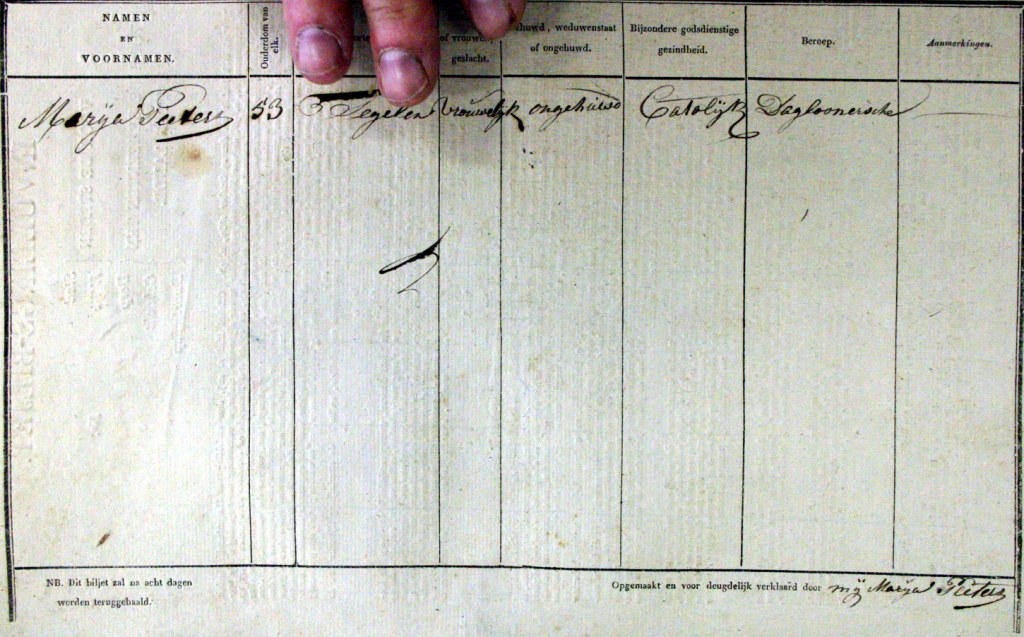 NAMEN
EN
VOORNAMEN.
Ouderdom van
elk.
of vrouw
geslacht.
huwd, weduwenstaat
of ongehuwd.
Bijzondere godsdienstige
gezindheid.
Beroep.
Aanmerkingen.
Marija Peeters 53 Segelen vrouwelijk ongehuwd Catolijk Dagloonersche
NB. Dit biljet zal na acht dagen
worden teruggehaald.
Opgemaakt en voor deugdelijk verklaard door mij Marija Peeters